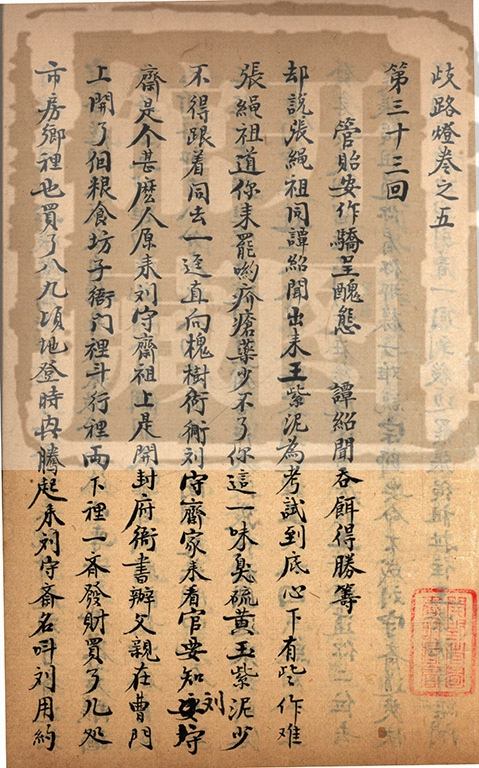 歧路燈卷之五
第三十三回
管貽安作驕呈醜態　譚紹聞吞餌得勝籌
却說張繩祖同譚紹聞出来王紫泥為考試到底心下有些作难
張繩祖道你来罷喲疥瘡藥少不了你這一味臭硫黄王紫泥少
不得跟着同去一逕直向槐樹衚衕刘守齋家来看官要知刘守
齋是个甚麽人原来刘守齋祖上是開封府衙書辦父親在曹門
上開了個粮食坊子衙门裡斗行裡両下裡一齊發財買了几処
市房鄉裡也買了八九頃地登時興騰起来刘守斎名叫刘用約